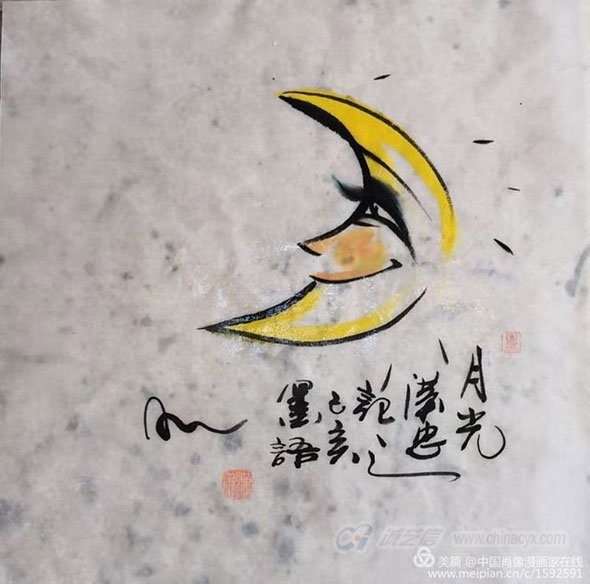 月光
漢忠
己亥
墨語
诚艺信 www.chinacyx.com
美篇 @中国肖像漫画家在线
www.meipian.cn/c/1592591